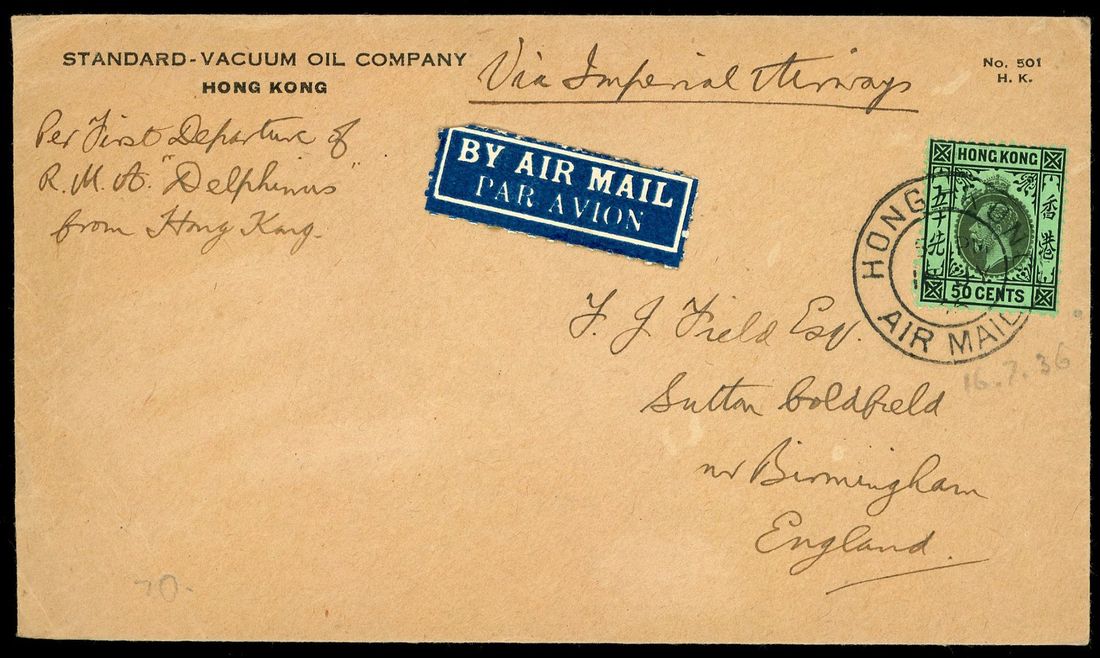 STANDARD-VACUUM OIL COMPANY
HONG KONG
Via Imperial Airways
No. 501
H. K.
Per First Departure of
R. M. A. "Delphinus"
from Hong Kong.
BY AIR MAIL
PAR AVION
HONG KONG
香港
五十先
50 CENTS
HONG KONG
AIR MAIL
16.7.36
F. J. Field Esq.
Sutton Coldfield
nr Birmingham
England.
70-